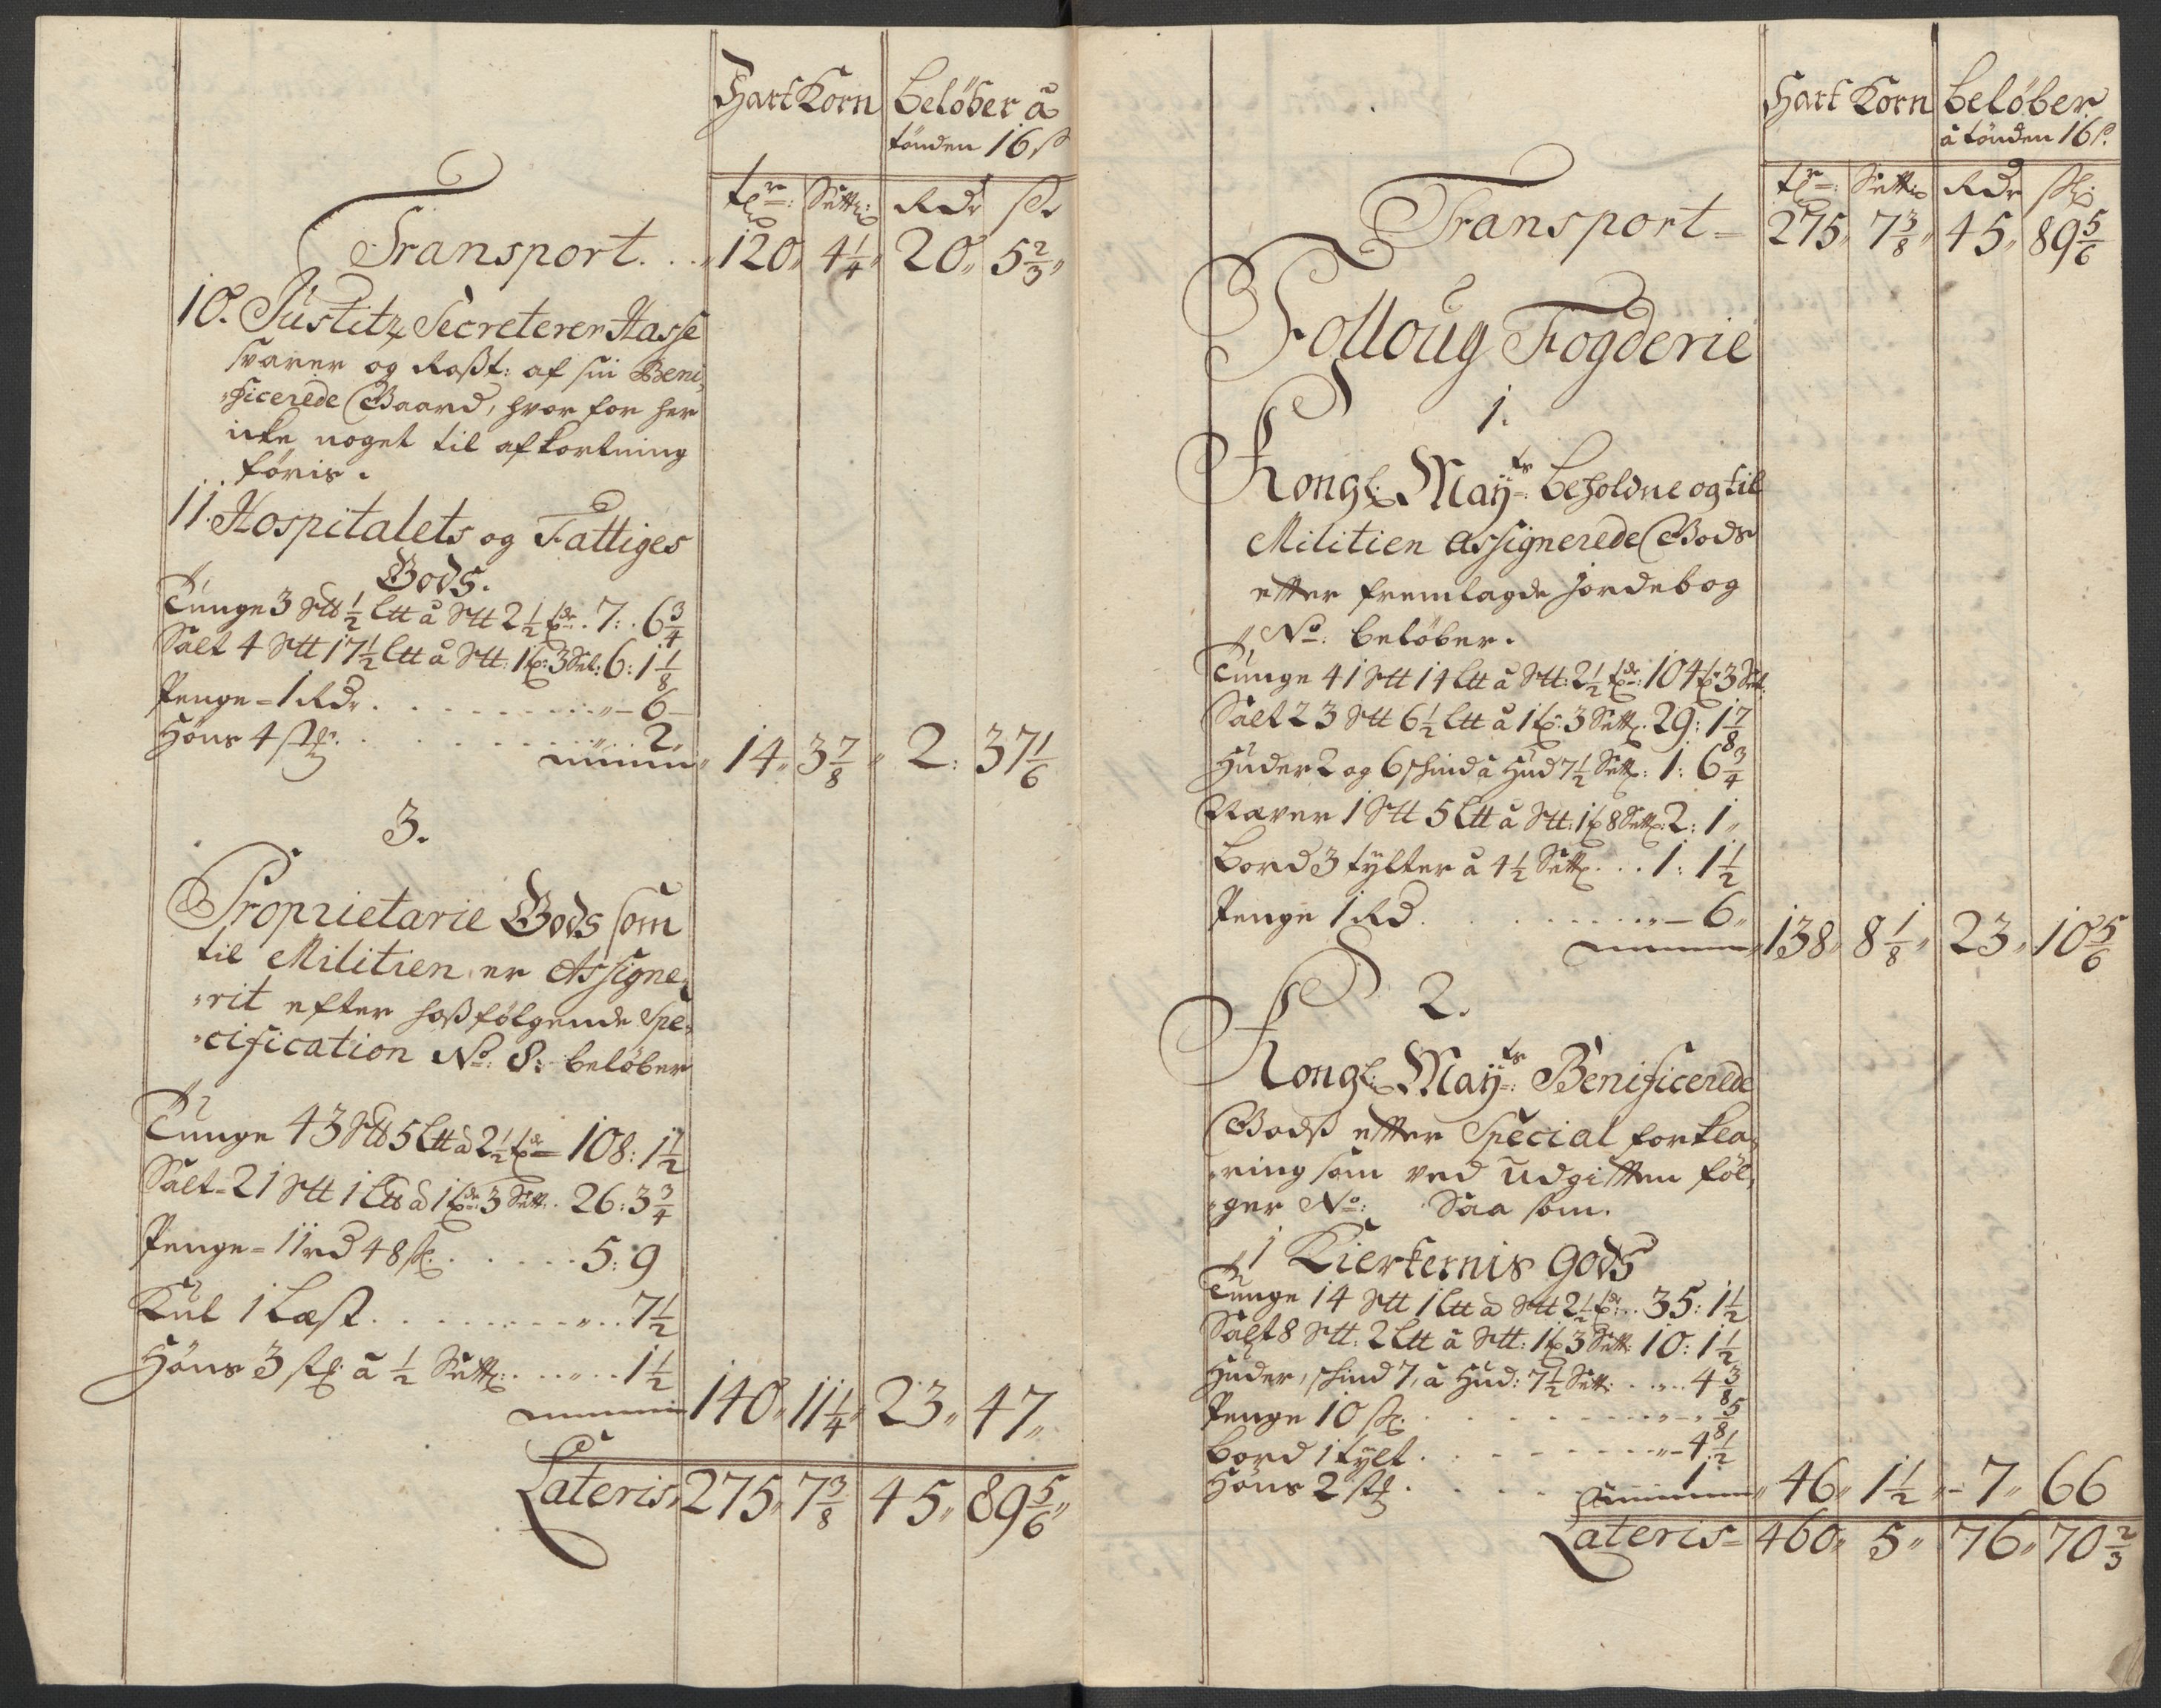 HartKorn Beløber â
tönden 16 s
tl̃r: Sett: Rdr sk
Transport. . . 120,, 4 1/4,, 20,, 5 2/3,,
10. Justitz Secreterer Hasse
svarer og Rosst: af sin Beni,
ficerede Gaard, hvor for her
icke noget til afkortning
föris.
11. Hospitalets og Fattiges
Gods.
Tunge 3 Stt 1/2 Ltt â Stt 2 1/2 tdr. 7:. 6 3/4
Salt 4 Stt 17 1/2 Ltt â Stt: 1 t: 3 Set: 6: 1 1/8
Penge = 1 Rdr. . . . . . . . . . „ – 6 –
Höns 4 stk. . . . . . . . . „ . . 2,
14,, 3 7/8 „ 2: 37 1/6
3.
Proprietarie Gods som
til Militien er Assigne,
rit efter hosfölgende Spe,
cification No: 8: belöber
Tunge 43 Stt 5 Ltt â 2 1/2 tdr = 108: 1 1/2
Salt = 21 Stt 1 Ltt â 1 tdr: 3 Sett: . 26: 3 3/4
Penge = 11 rd 48 sk. . . . . . . 5: 9
Kul 1 Læst. . . . . . . . „ . . 7 1/2
Höns 3 stk â 1/2 Sett: . . . „ . . 1 1/2
140,, 11 1/4,, 23,, 47,,
Lateris,, 275,, 7 3/8 45,, 89 5/6,,
Hart Korn beløber
â tönden 16 s.
tl̃r: Sett: Rdr sk:
Transport = 275,, 7 3/8,, 45,, 89 5/6
Folloug Fogderie
1.
Kongl: Mayts: beholdne og til
Militien assignerede Gods
etter fremlagde Jordebog
No: belöber.
Tunge 41 Stt 14 Ltt â Stt: 2 1/2 tdr: 104 t 3 Set:
Salt 23 Stt 6 1/2 Ltt â 1 t: 3 Sett: 29: 1 7/8
Huder 2 og 6 skind â Hud 7 1/2 Sett: 1: 6 3/4
Næver 1 Stt 5 Ltt â Stt: 1 t 8 Sett: 2: 1,,
Bord 3 tylter â 4 1/2 Sett. . . . 1: 1 1/2
Penge 1 Rd. . . . . . . . . „ – 6,,
138,, 8 1/8,, 23,, 10 5/6
2.
Kongl: Mayts: Benificerede
Godss etter Special forkla,
ring som ved udgitten föl,
ger No: Saa som.
1 Kierkernis gods
Tunge 14 Stt 1 Ltt â Stt 2 1/2 tdr: . . 35: 1 1/2
Salt 8 Stt: 2 Ltt â Stt: 1 t 3 Sett: 10: 1 1/2
Huder, skind 7, â Hud: 7 1/2 Sett: . . „ . . 4 3/8
Penge 10 sk. . . . . . . . . . „ – „ 5/8
Bord 1 tylt . . . . . . . . . „ – 4 1/2
Höns 2 stk . . . . . . . 1.
46,, 1 1/2 „ – 7,, 66
Lateris = 460,, 5,, 76,, 70 2/3